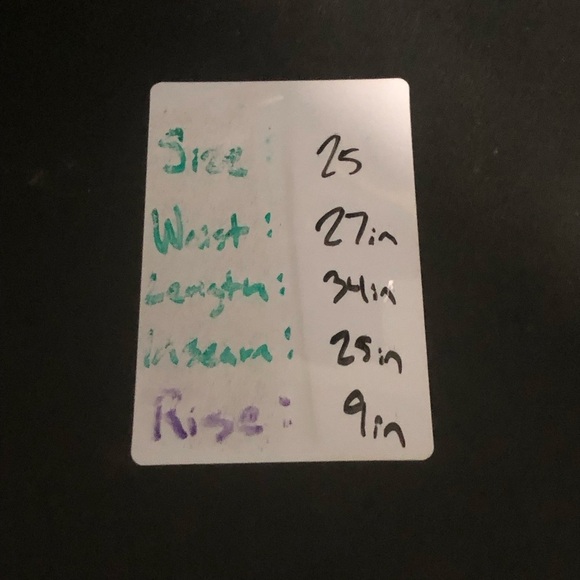 Size: 25
Waist: 27in
Length: 34in
Inseam: 25in
Rise: 9in